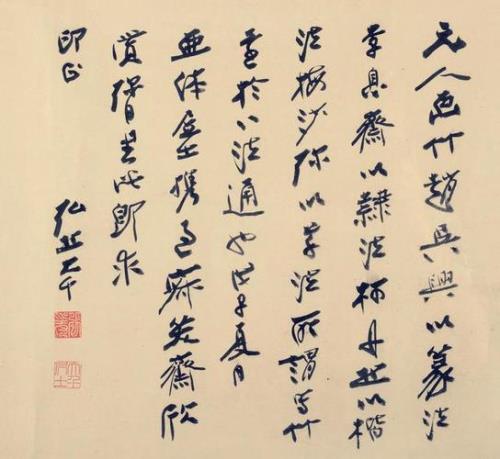 元人画竹趙吳興以篆法
李息齋以隸法柯丹丘以楷
法梅沙弥以草法所謂寫竹
於八法通也戊子夏日
携過齋欣
賞此即求
印正
弘丘大千